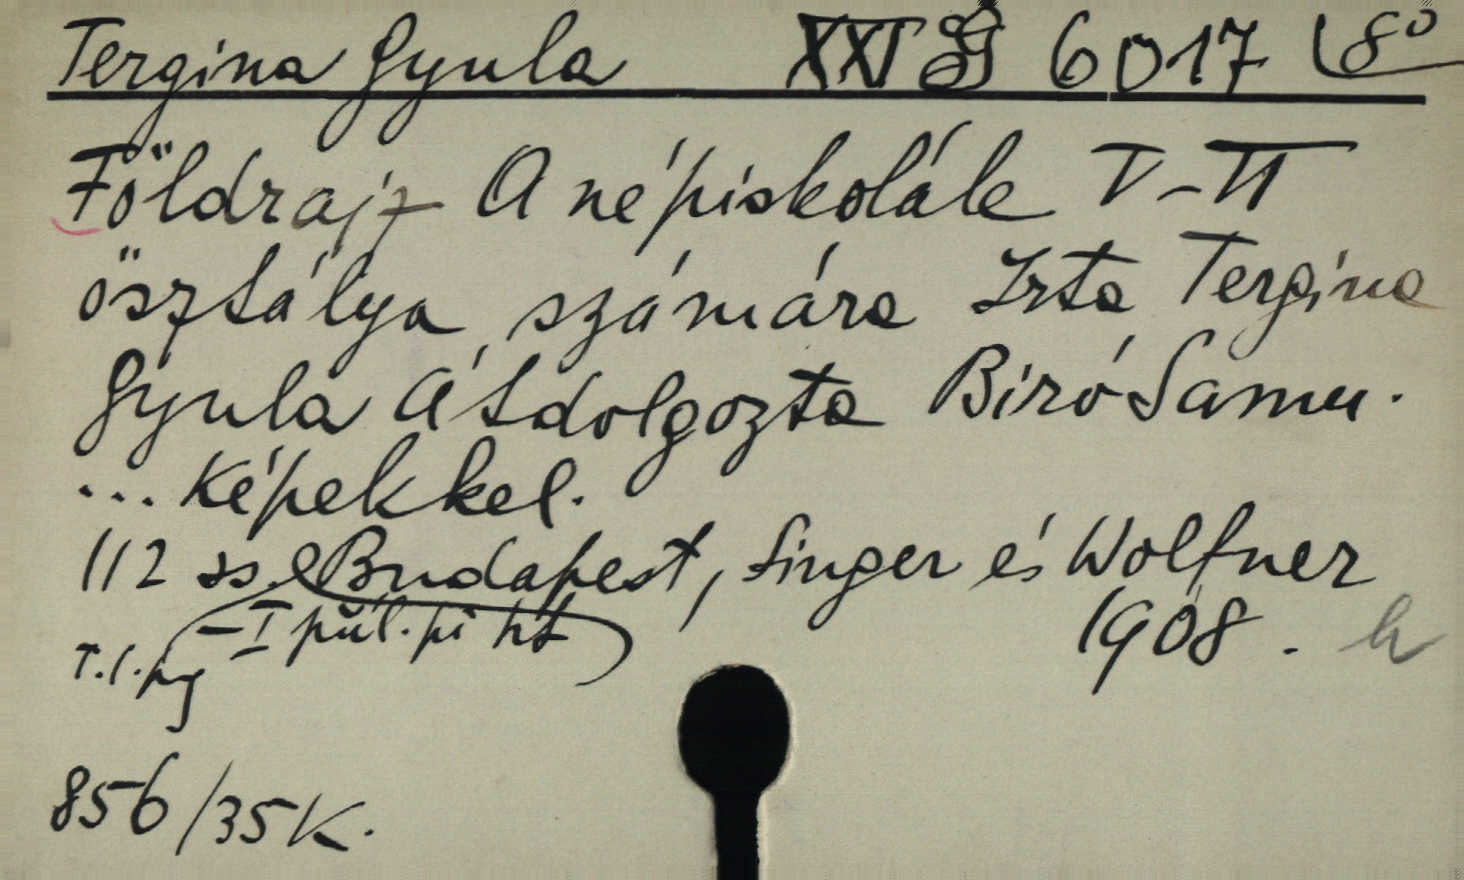 Tergina Gyula XXI 6017 8°
Földrajz A népiskolák V-VI
ősztálya számára Irta Tergina
Gyula Átdolgozta Biró Samu.
... képekkel.
112 ss. Budapest, Singer és Wolfner
1908.
856/35K.